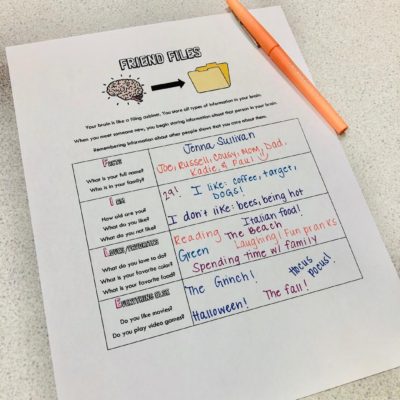 FRIEND FILES
Your brain is like a filing cabinet. You store all types of information in your brain.
When you meet someone new, you begin storing information about that person in your brain.
Remembering information about other people shows that you care about them.
FACTS
What is your full name?
Who is in your family?
Jenna Sullivan
Joe, Russell, Cousy, Mom, Dad,
Kadie & Paul
I AM
How old are you?
What do you like?
What do you not like?
29! I like: coffee, target,
DOGS!
I don't like: bees, being hot
LOVES/FAVORITES
What do you love to do?
What is your favorite color?
What is your favorite food?
Italian food!
Reading The Beach
Green Laughing/Fun pranks
Spending time w/ family
EVERYTHING ELSE
Do you like movies?
Do you play video games?
The Grinch! Hocus
pocus!
Halloween! The fall!